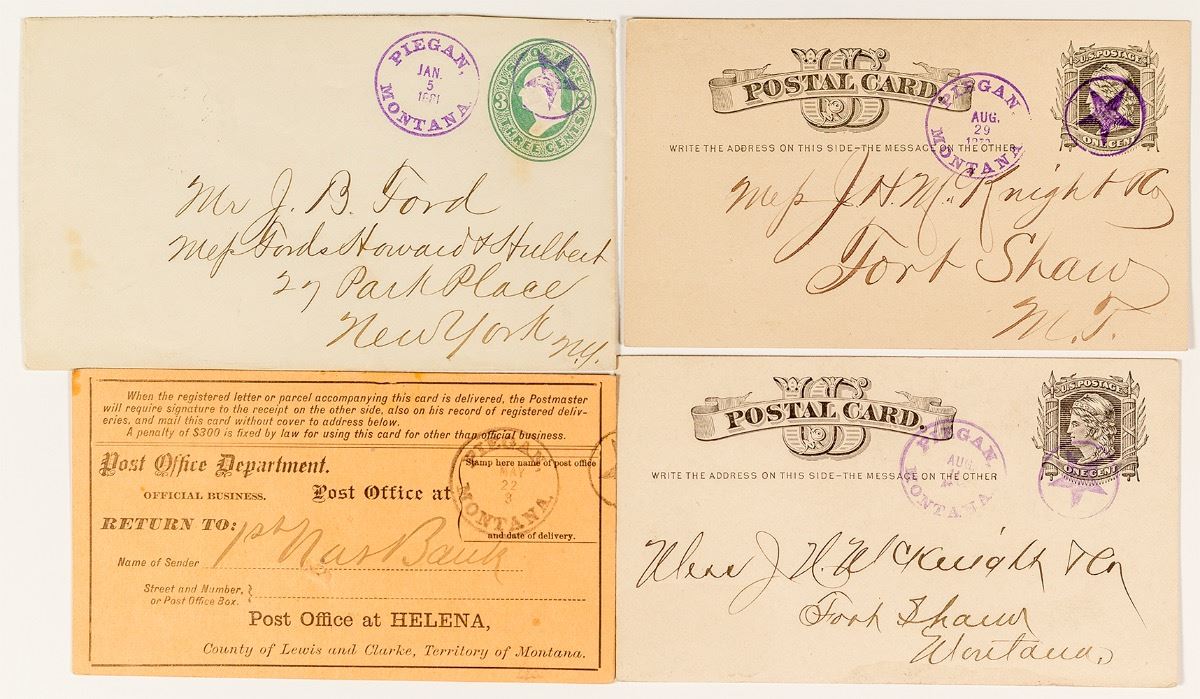 PIEGAN,
JAN.
5
1881
MONTANA
U.S. POSTAGE
3 3
THREE CENTS
Mr J. B. Ford
Mess Fords Howard & Hulbert
27 Park Place
New York N.Y.
US
POSTAL CARD.
PIEGAN,
AUG.
29
MONTANA
U.S. POSTAGE
ONE CENT
WRITE THE ADDRESS ON THIS SIDE–THE MESSAGE ON THE OTHER
Mess J. H. McKnight & Co
Fort Shaw
M.T.
When the registered letter or parcel accompanying this card is delivered, the Postmaster
will require signature to the receipt on the other side, also on his record of registered deliv-
eries, and mail this card without cover to address below.
A penalty of $300 is fixed by law for using this card for other than official business.
Post Office Department.
OFFICIAL BUSINESS.
Post Office at
Stamp here name of post office
and date of delivery.
PIEGAN,
MAY
22
3
MONTANA.
RETURN TO:
Name of Sender 1st Nat Bank
Street and Number,
or Post Office Box.
Post Office at HELENA,
County of Lewis and Clarke, Territory of Montana.
US
POSTAL CARD.
PIEGAN,
AUG.
MONTANA.
U.S. POSTAGE
ONE CENT
WRITE THE ADDRESS ON THIS SIDE–THE MESSAGE ON THE OTHER
Mess J H McKnight & Co
Fort Shaw
Montana,